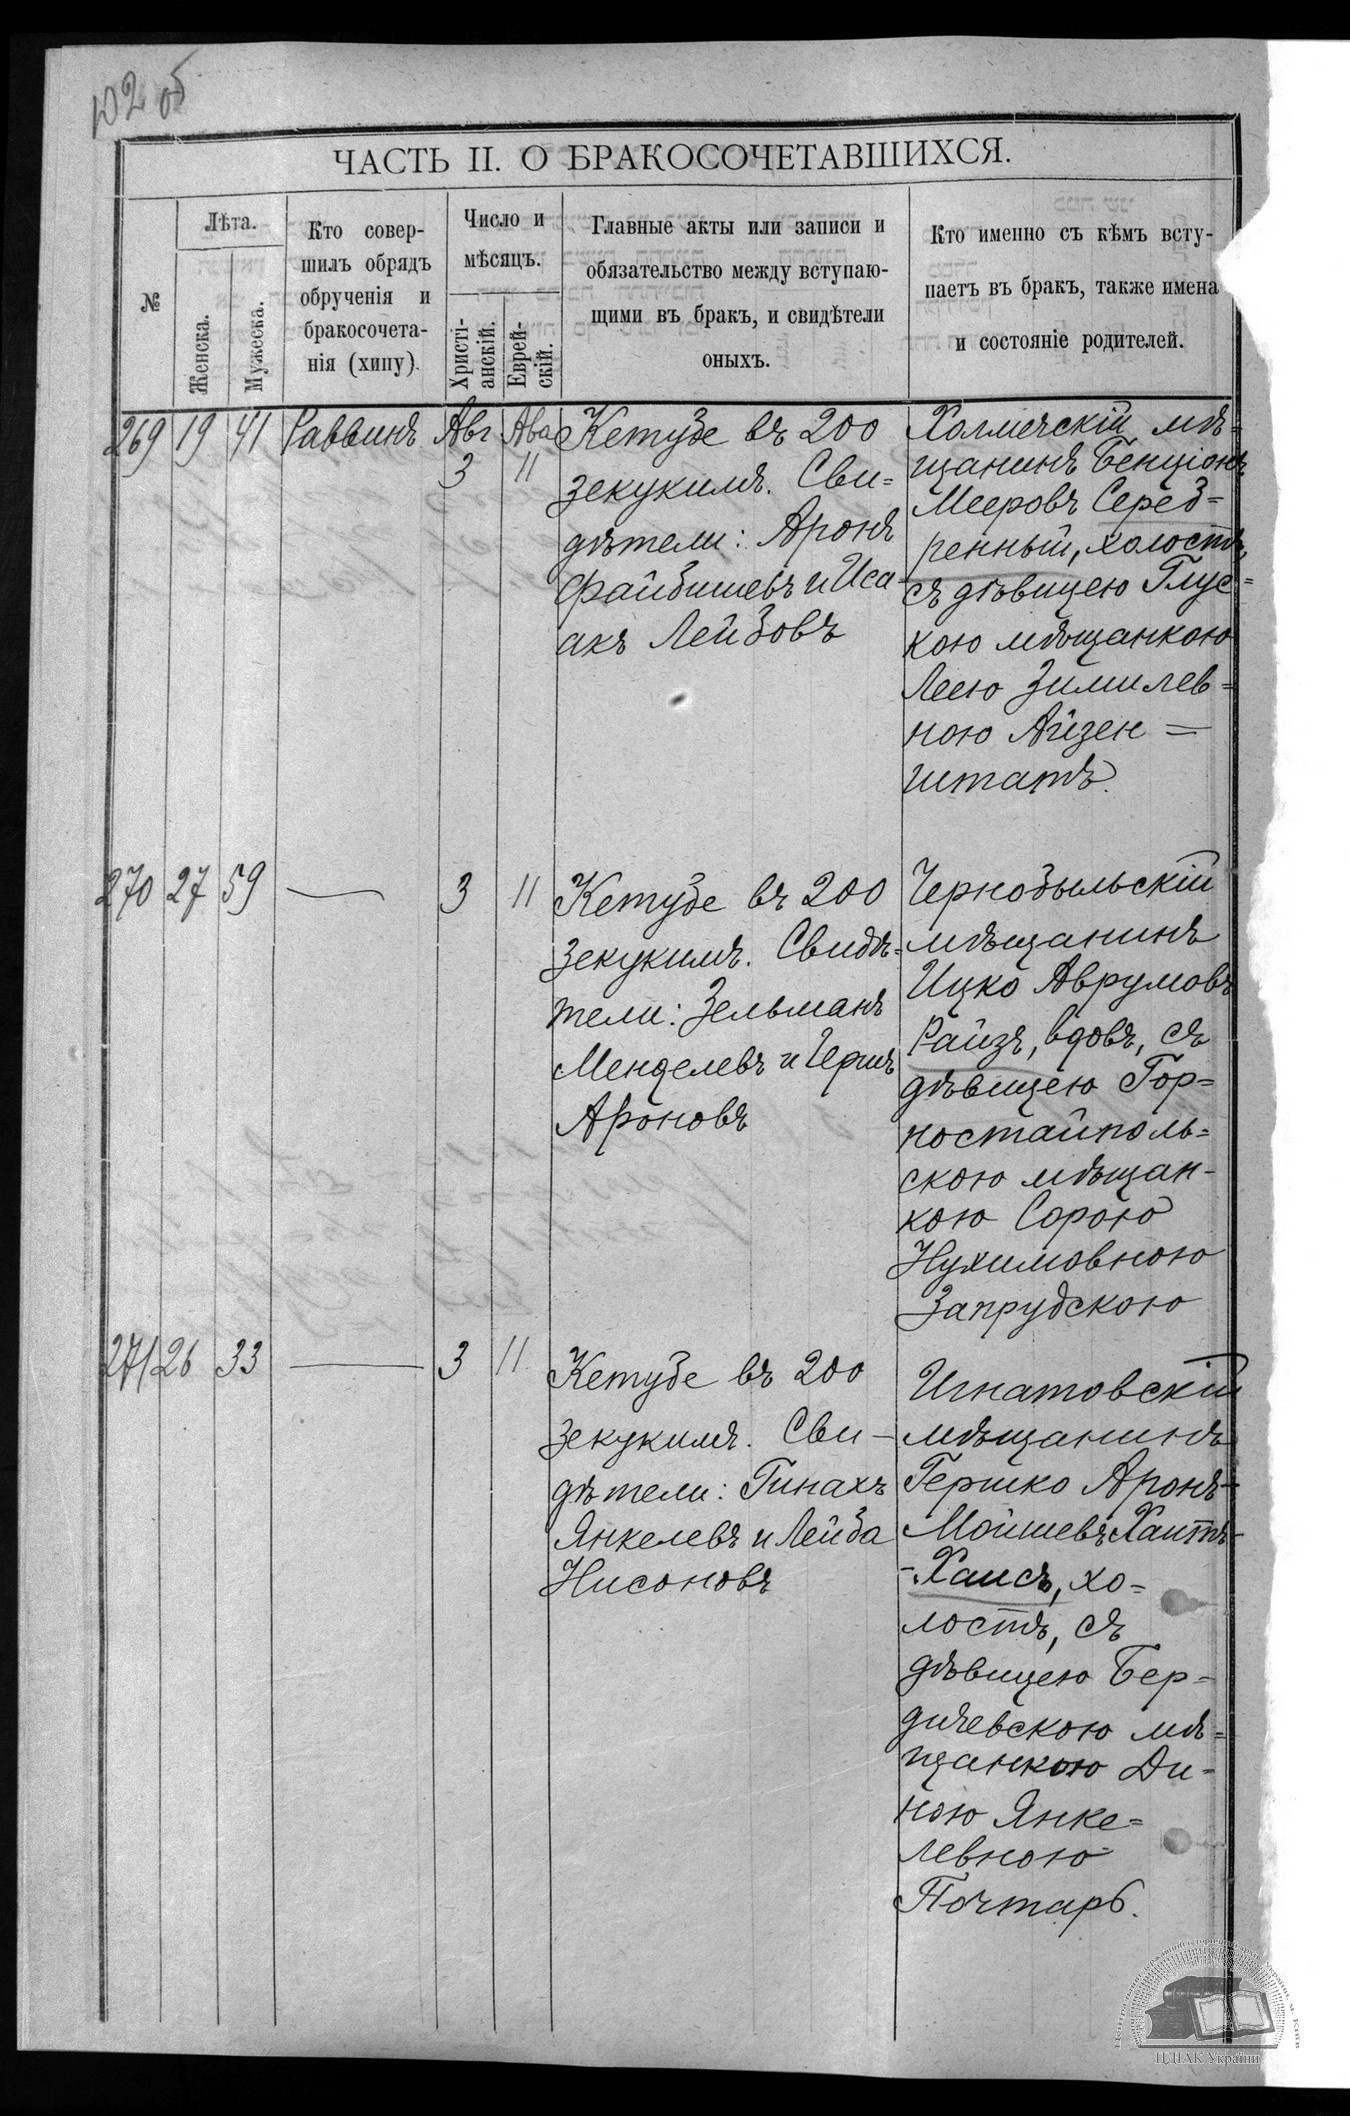 102 об
ЧАСТЬ II. О БРАКОСОЧЕТАВШИХСЯ.
№
Лѣта.
Женска.
Мужеска.
Кто совер-
шилъ обрядъ
обрученія и
бракосочета-
нія (хипу).
Число и
мѣсяцъ.
Христі-
анскій.
Еврей-
скій.
Главные акты или записи и
обязательство между вступаю-
щими въ бракъ, и свидѣтели
оныхъ.
Кто именно съ кѣмъ всту-
паетъ въ бракъ, также имена
и состояніе родителей.
269 19 41 Раввинъ Авг 3 Ава 11
Кетубе въ 200
зекукимъ. Сви=
дѣтели: Аронъ
Файбишевъ и Иса-
акъ Лейзовъ
Холмечскій мѣ=
щанинъ Бенціонъ
Мееровъ Сереб=
ренный, холостъ,
съ дѣвицею Глус=
кою мѣщанкою
Леею Зимилев=
ною Айзен=
штатъ.
270 27 59 — 3 11
Кетубе въ 200
зекукимъ. Свидѣ=
тели: Зельманъ
Менделевъ и Гершъ
Ароновъ
Чернобыльскій
мѣщанинъ
Ицко Аврумовъ
Райзъ, вдовъ, съ
дѣвицею Гор=
ностайполь=
скою мѣщан-
кою Сорою
Нухимовною
Запрудскою
271 26 33 — 3 11
Кетубе въ 200
зекукимъ. Сви-
дѣтели: Пинахъ
Янкелевъ и Лейба
Нисоновъ
Игнатовскій
мѣщанинъ
Гершко Аронъ-
Мойшевъ Хаитъ-
-Хаисъ, хо=
лостъ, съ
дѣвицею Бер=
дичевскою мѣ=
щанкою Ди=
ною Янке=
левною
Почтарь.
ЦДІАК України